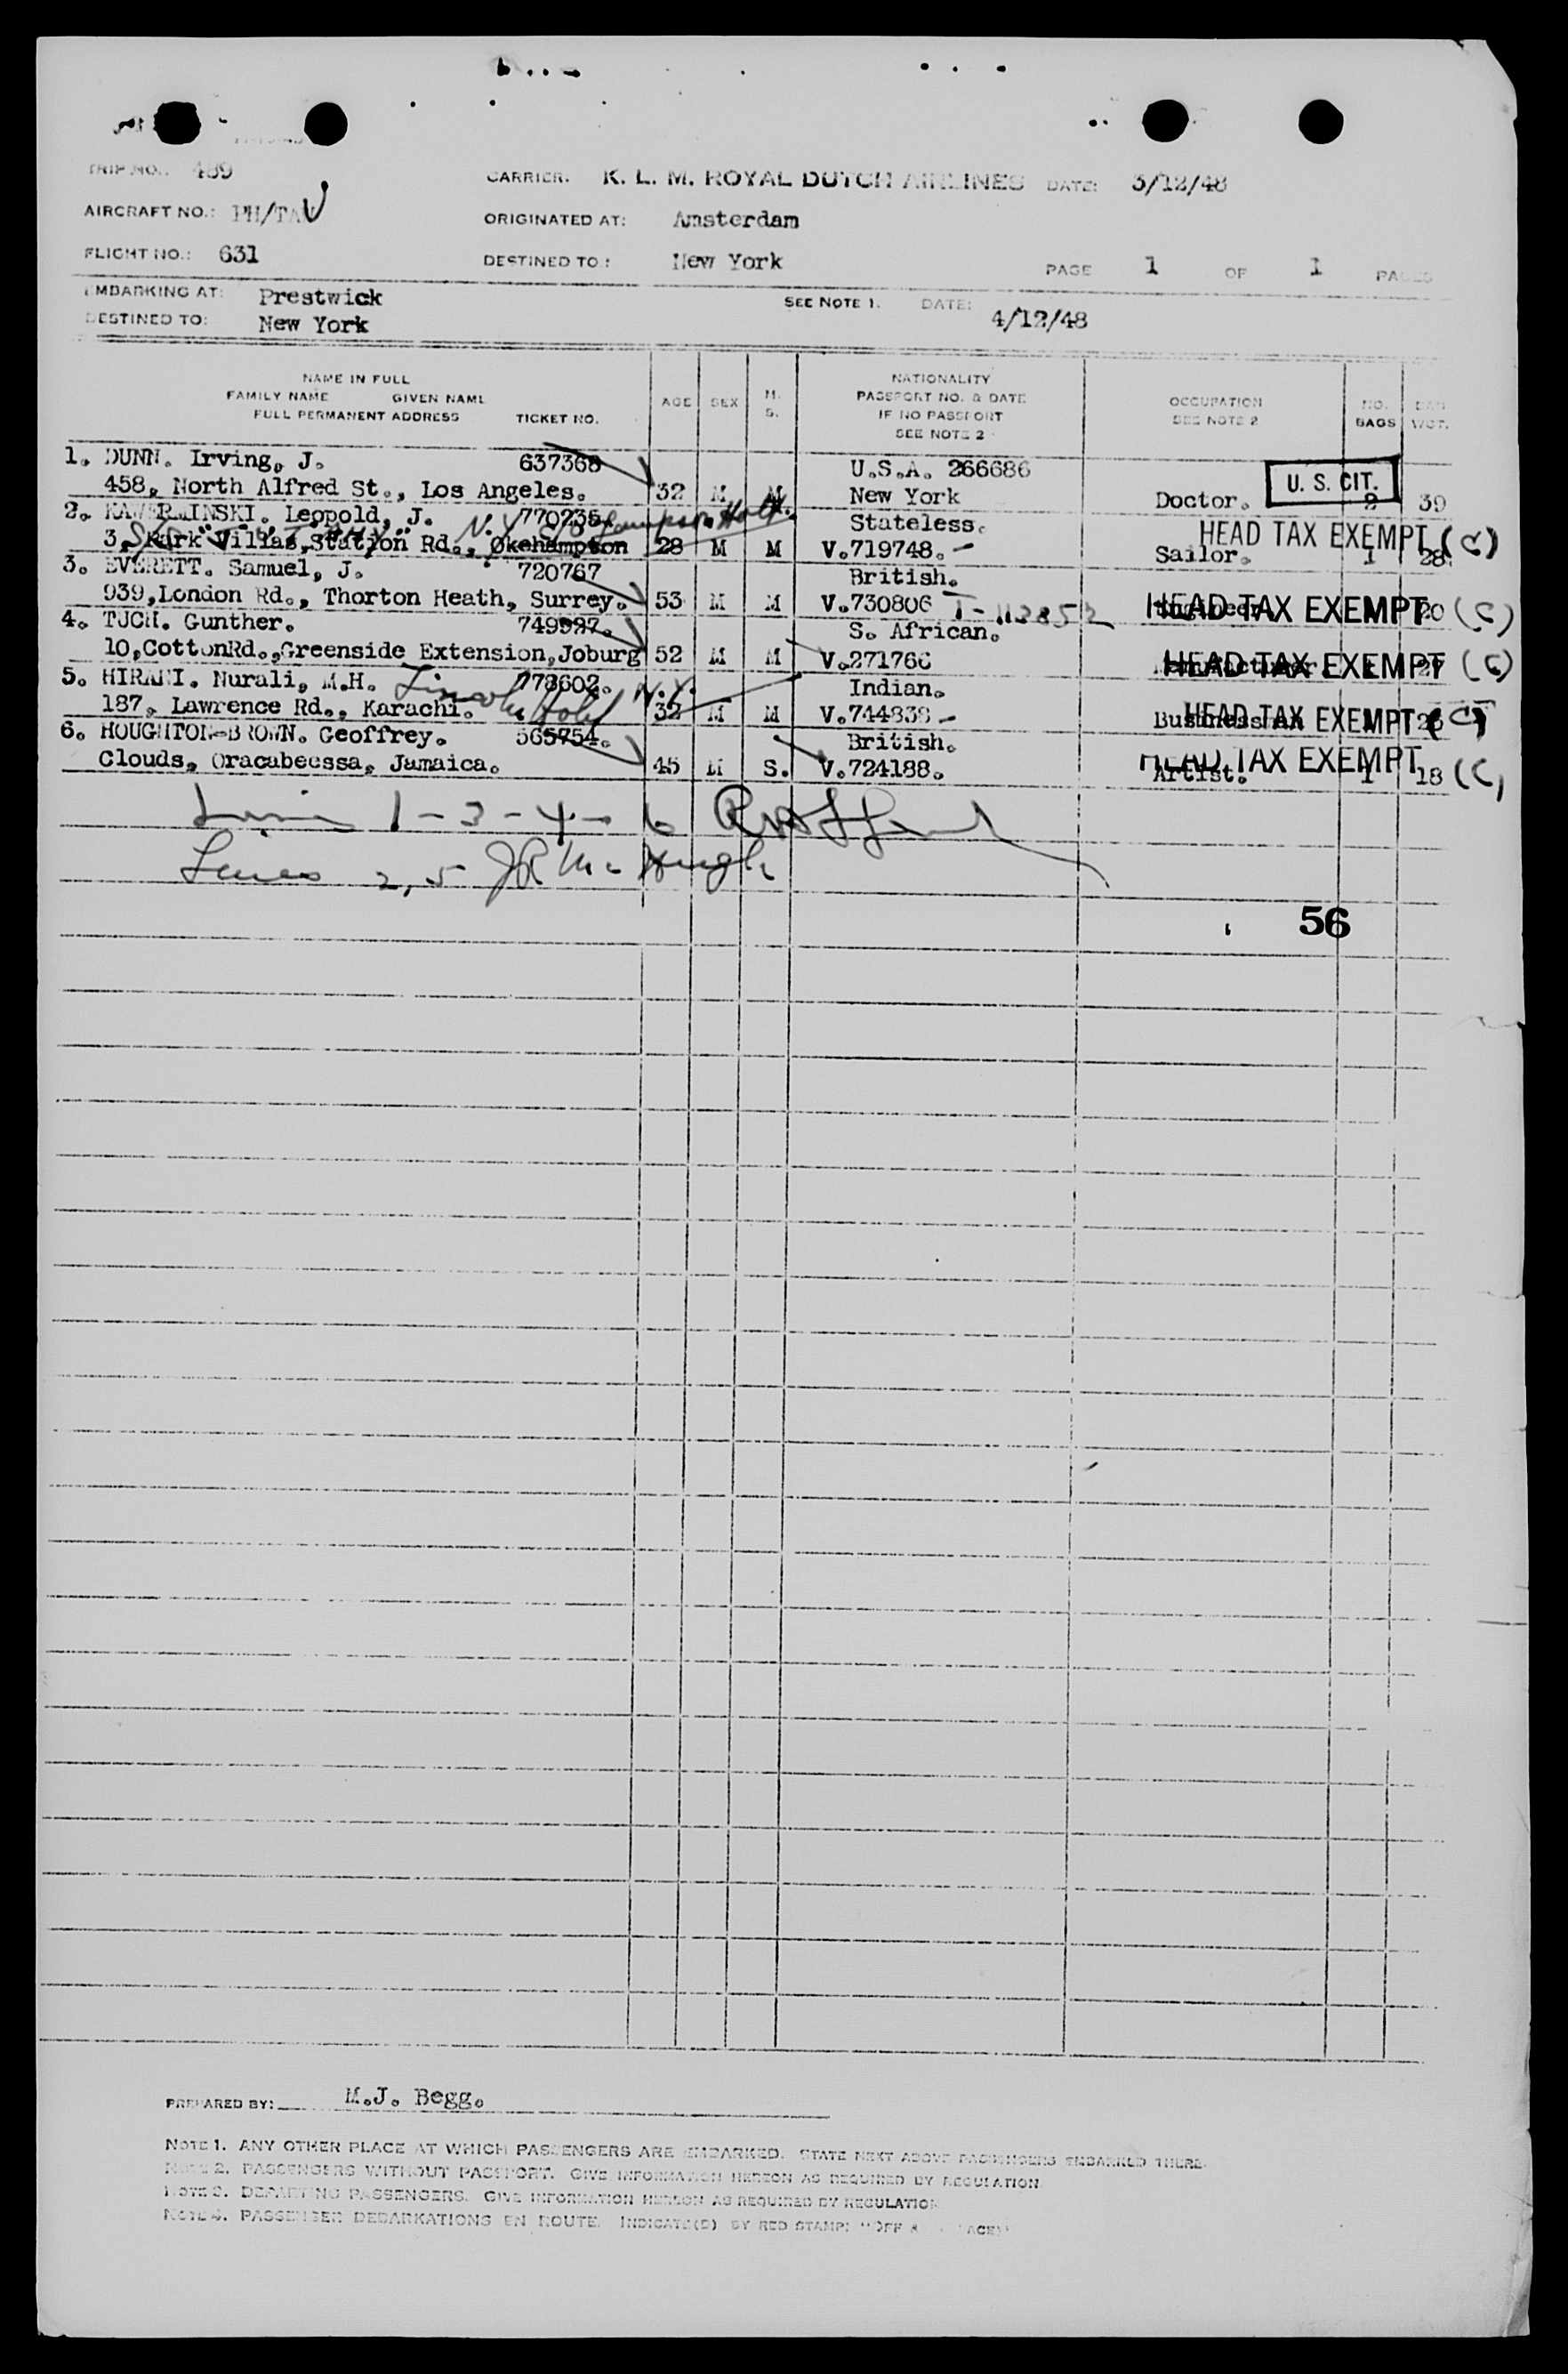 TRIP NO.: 489
CARRIER: K. L. M. ROYAL DUTCH AIRLINES DATE: 3/12/48
AIRCRAFT NO.: PH/TAV
ORIGINATED AT: Amsterdam
FLIGHT NO.: 631
DESTINED TO: New York
PAGE 1 OF 1 PAGES
EMBARKING AT: Prestwick
SEE NOTE 1. DATE: 4/12/48
DESTINED TO: New York
NAME IN FULL
FAMILY NAME GIVEN NAME
FULL PERMANENT ADDRESS TICKET NO.
AGE SEX M. S.
NATIONALITY
PASSPORT NO. & DATE
IF NO PASSPORT
SEE NOTE 2
OCCUPATION
SEE NOTE 2
NO. BAGS
WGT.
1. DUNN. Irving, J. 637368 U.S.A. 266686
458, North Alfred St., Los Angeles. 32 M M New York Doctor. U. S. CIT. 2 39
2. Leopold, J. 770235. Stateless. HEAD TAX EXEMPT (C)
3, Park Villas, Station Rd., Okehampton 28 M M V.719748. Sailor. 1 28.
3. EVERETT. Samuel, J. 720767 British.
939, London Rd., Thorton Heath, Surrey. 53 M M V.730806 T-113852 HEAD TAX EXEMPT 20 (C)
4. TJCH. Gunther. 749927. S. African.
10, Cotton Rd., Greenside Extension, Joburg 52 M M V.271766 HEAD TAX EXEMPT 27 (C)
5. HIRANI. Nurali, M.H. 778602. Lincoln Hotel N.Y. Indian.
187, Lawrence Rd., Karachi. 32 M M V.744838 Businessman HEAD TAX EXEMPT (C)
6. HOUGHTON-BROWN. Geoffrey. 565754. British.
Clouds, Oracabeessa, Jamaica. 45 M S. V.724188. Artist. HEAD TAX EXEMPT 1 18 (C)
1-3-4-6
Lines 2, 5 JR McHugh
56
PREPARED BY: M.J. Begg.
NOTE 1. ANY OTHER PLACE AT WHICH PASSENGERS ARE EMBARKED. STATE NEXT ABOVE PASSENGERS EMBARKED THERE.
NOTE 2. PASSENGERS WITHOUT PASSPORT. GIVE INFORMATION HEREON AS REQUIRED BY REGULATION
NOTE 3. DEPARTING PASSENGERS. GIVE INFORMATION HEREON AS REQUIRED BY REGULATION
NOTE 4. PASSENGER DEBARKATIONS EN ROUTE. INDICATE(D) BY RED STAMP: "OFF